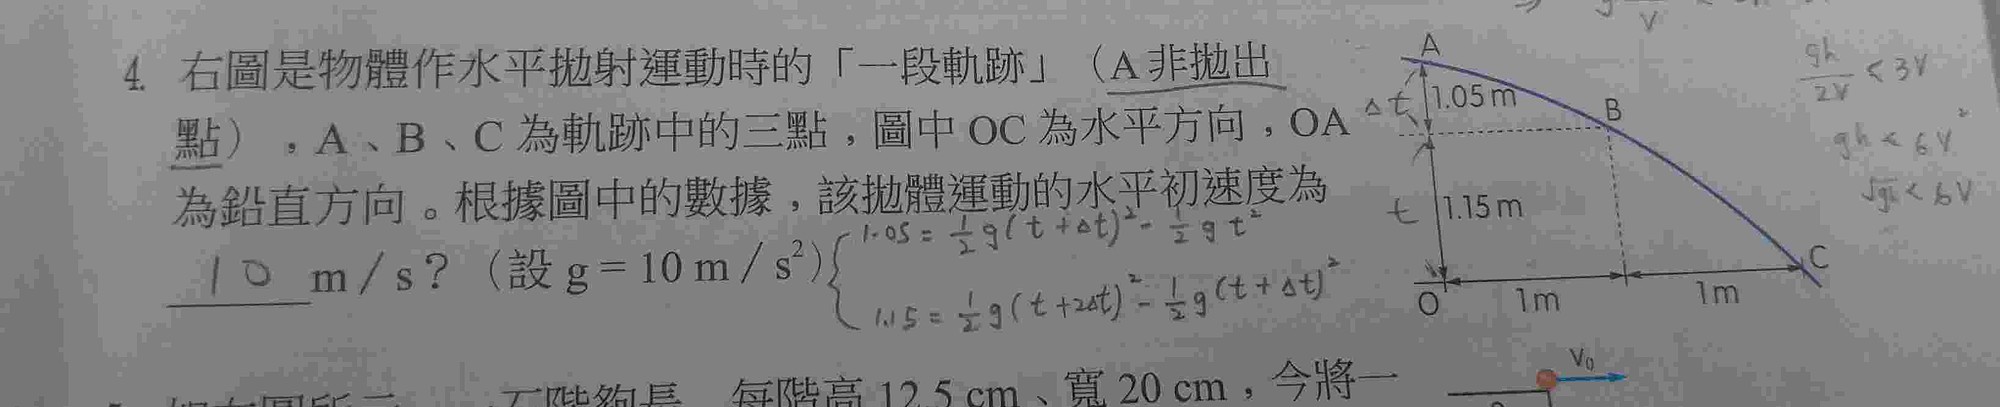 4. 右圖是物體作水平拋射運動時的「一段軌跡」(A 非拋出
點),A、B、C 為軌跡中的三點,圖中 OC 為水平方向,OA
為鉛直方向。根據圖中的數據,該拋體運動的水平初速度為
10 m/s?(設 g = 10 m/s²)
1.05 = ½g(t+Δt)² - ½gt²
1.15 = ½g(t+2Δt)² - ½g(t+Δt)²
A
Δt 1.05 m
B
t 1.15 m
C
O 1m 1m
gh/2V < 3V
gh < 6V²
每階高 12.5 cm、寬 20 cm,今將一
V₀